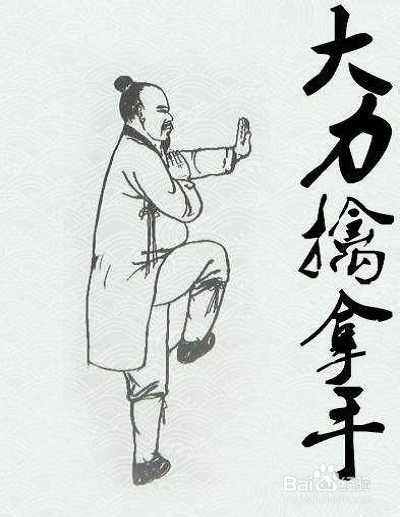 大力擒拿手
Baidu经验